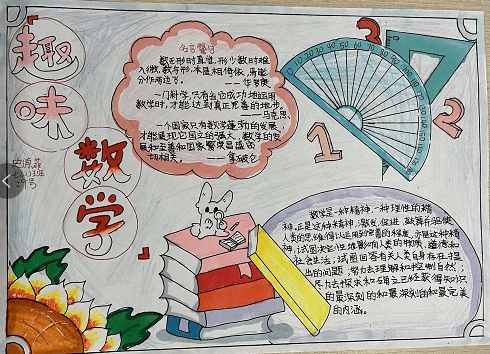 趣
味
数
学
名言警句
数无形时少直觉,形少数时难
入微,数与形,本是相倚依,焉能
分作两边飞。
——华罗庚
一门科学,只有当它成功地运用
数学时,才能达到真正完善的地步。
——马克思
一个国家只有数学蓬勃的发展,
才能展现它国立的强大。数学的发
展和至善和国家繁荣昌盛密
切相关。——拿破仑
1
2
3
0 10 20 30 40 50 60
数学是一种精神,一种理性的精
神。正是这种精神,激发、促进、鼓舞并驱使
人类的思维得以运用到最完善的程度,亦是这种精
神,试图决定性地影响人类的物质、道德和
社会生活;试图回答有关人类自身存在提
出的问题;努力去理解和控制自然;
尽力去探求和确立已经获得知识
的最深刻的和最完美
的内涵。